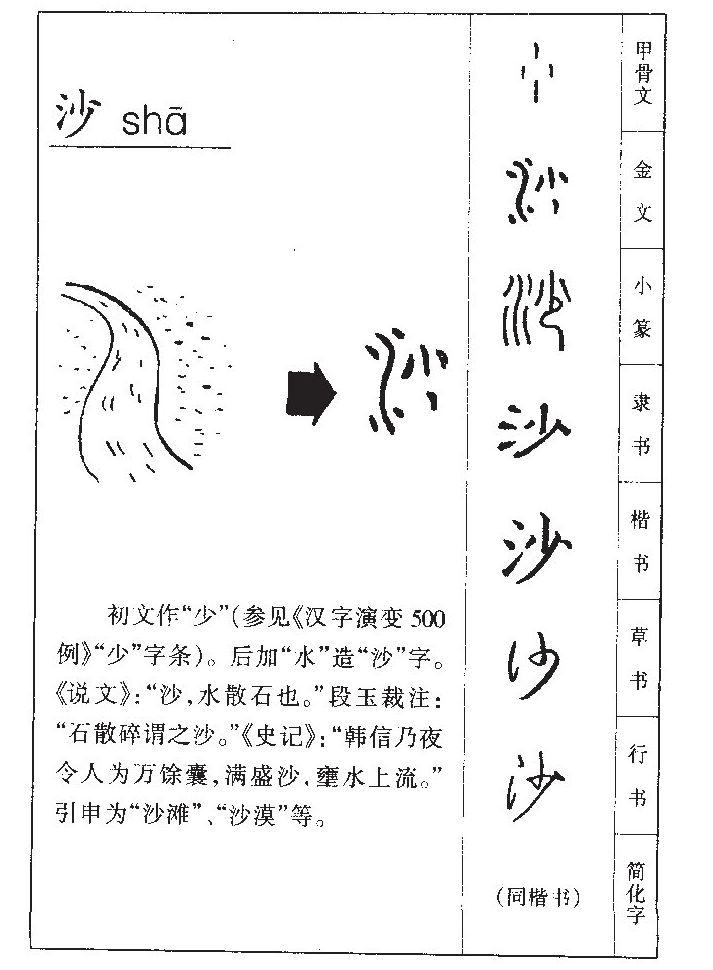 沙 shā
初文作“少”(参见《汉字演变500
例》“少”字条)。后加“水”造“沙”字。
《说文》:“沙,水散石也。”段玉裁注:
“石散碎谓之沙。”《史记》:“韩信乃夜
令人为万馀囊,满盛沙,壅水上流。”
引申为“沙滩”、“沙漠”等。
甲骨文
金文
沙
小篆
沙
隶书
沙
楷书
沙
草书
沙
行书
沙
简化字
(同楷书)